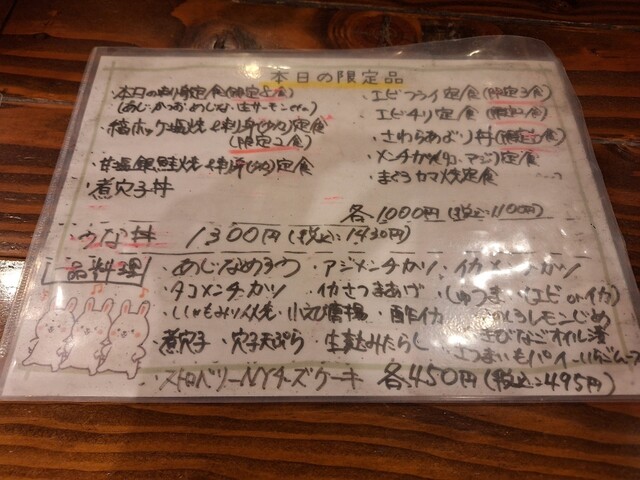 本日の限定品
・本日の刺身定食(限定8食)
(あじ・かつお・めじな・生サーモンetc)
・縞ホッケ塩焼と刺身(少々)定食
(限定2食)
・甘塩銀鮭焼と刺身(少々)定食
・煮穴子丼
・エビフライ定食(限定3食)
・エビチリ定食(限定2食)
・さわらあぶり丼(限定2食)
・メンチカツ(タコ・アジ)定食
・まぐろカマ焼定食
各1000円(税込:1100円)
・うな丼 1300円(税込:1430円)
一品料理
・あじなめろう ・アジメンチカツ ・イカメンチカツ
・タコメンチカツ ・イカさつまあげ ・しゅうまい(エビorイカ)
・ししゃもみりん焼 ・酢イカ レモンじめ
・煮穴子 ・穴子天ぷら ・生みたらし きびなごオイル漬
・さつまいもパイ
・ストロベリーNYチーズケーキ 各450円(税込:495円)